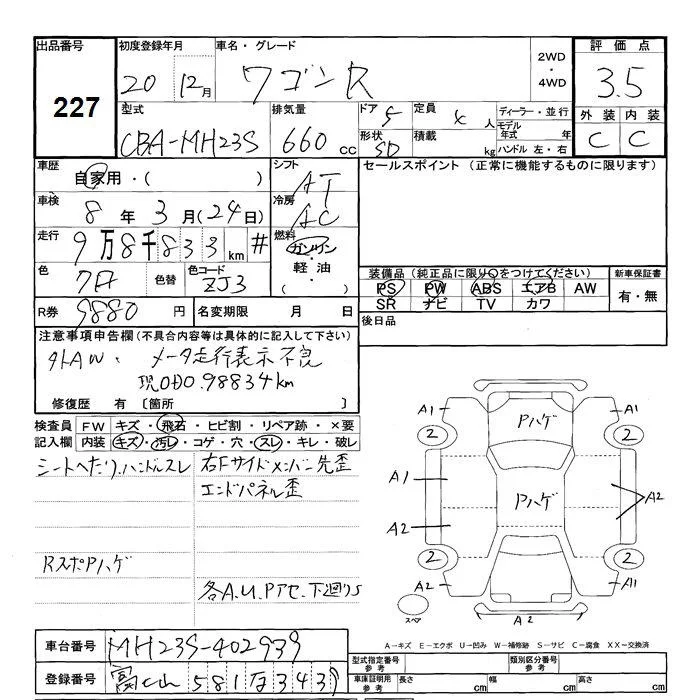 出品番号
227
初度登録年月
20 12月
車名・グレード
ワゴンR
2WD・4WD
評価点
3.5
外装 内装
C C
型式
CBA-MH23S
排気量
660 cc
ドア 5
形状 5D
定員 4 人
積載 kg
ディーラー・並行
モデル年式 年
ハンドル 左・右
車歴
自家用・( )
車検
8年 3月(24日)
走行
9万8千833km #
色
7日
色替
色コード
ZJ3
シフト
AT
冷房
AC
燃料
ガソリン
軽油・
セールスポイント(正常に機能するものに限ります)
装備品(純正品に限り○をつけてください)
PS PW ABS エアB AW
SR ナビ TV カワ
新車保証書
有・無
R券 9880円
名変期限 月 日
後日品
注意事項申告欄(不具合内容等は具体的に記入して下さい)
外AW、メータ走行表示不良
現ODO.98834km
修復歴 有〔箇所 〕
検査員記入欄
FW キズ・飛石・ヒビ割・リペア跡・×要
内装 キズ・汚レ・コゲ・穴・スレ・キレ・破レ
シートへたり、ハンドルスレ
右Fサイドメンバー先歪
エンドパネル歪
RスポPハゲ
各A.U.Pアセ、下廻りS
Pハゲ
Pハゲ
A1 A1
2 2
A1
A2 A2
2 2
A2 A1
スペア
A2
A-キズ E-エクボ U-凹み W-補修跡 S-サビ C-腐食 XX-交換済
車台番号
MH23S-402939
登録番号
富山 581
343
型式指定番号 参考
類別区分番号 参考
車庫証明用 参考
長さ cm
幅 cm
高さ cm